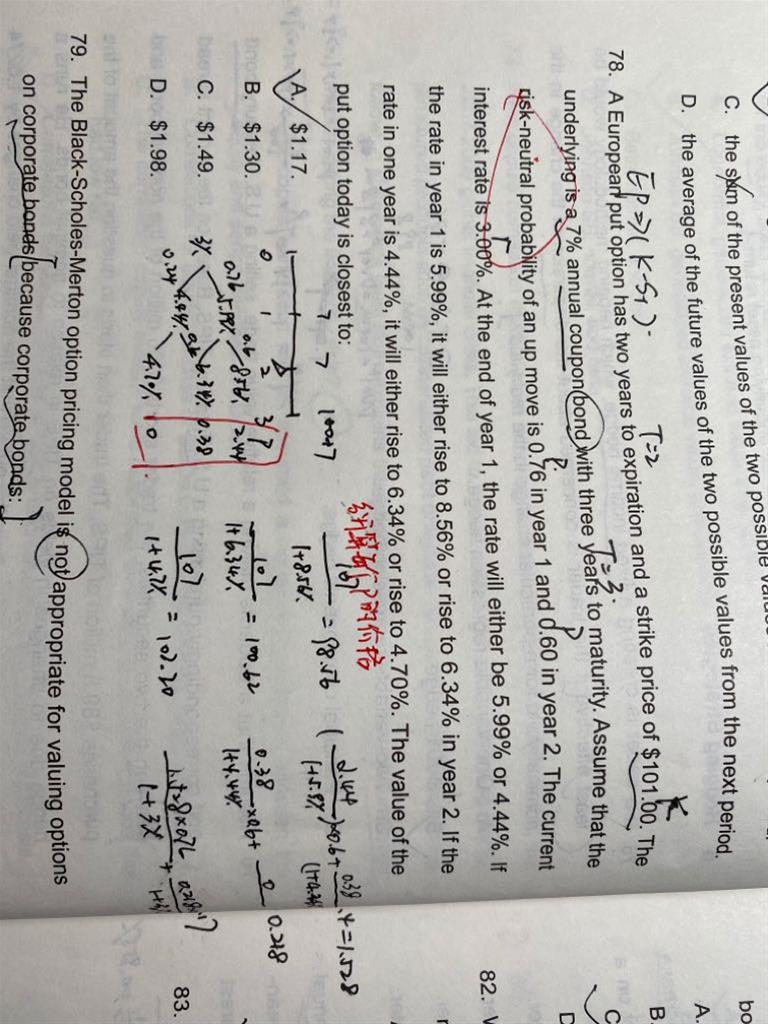 C. the sum of the present values of the two possible
D. the average of the future values of the two possible values from the next period.
EP⇒(K-S₁)
T=2
K
78. A European put option has two years to expiration and a strike price of $101.00. The
T=3.
underlying is a 7% annual coupon bond with three years to maturity. Assume that the
P
P
risk-neutral probability of an up move is 0.76 in year 1 and 0.60 in year 2. The current
r
interest rate is 3.00%. At the end of year 1, the rate will either be 5.99% or 4.44%. If
the rate in year 1 is 5.99%, it will either rise to 8.56% or rise to 6.34% in year 2. If the
rate in one year is 4.44%, it will either rise to 6.34% or rise to 4.70%. The value of the
put option today is closest to:
A. $1.17.
B. $1.30.
C. $1.49.
D. $1.98.
7 7 100+7
0 1 2 3
0.76 5.99% 0.6 8.56% 2.44
3% 6.34% 0.38
0.24 4.44% 4.70% 0
107
1+8.56% = 98.56
107
1+6.34% = 100.62
107
1+4.7% = 102.20
2.44
0.38
×0.6+ .4=1.528
0.38
1+4.44% ×0.6+ 0 0.218
1+3%
79. The Black-Scholes-Merton option pricing model is not appropriate for valuing options
on corporate bonds because corporate bonds:
bo
A.
B.
C
D
82.
83.